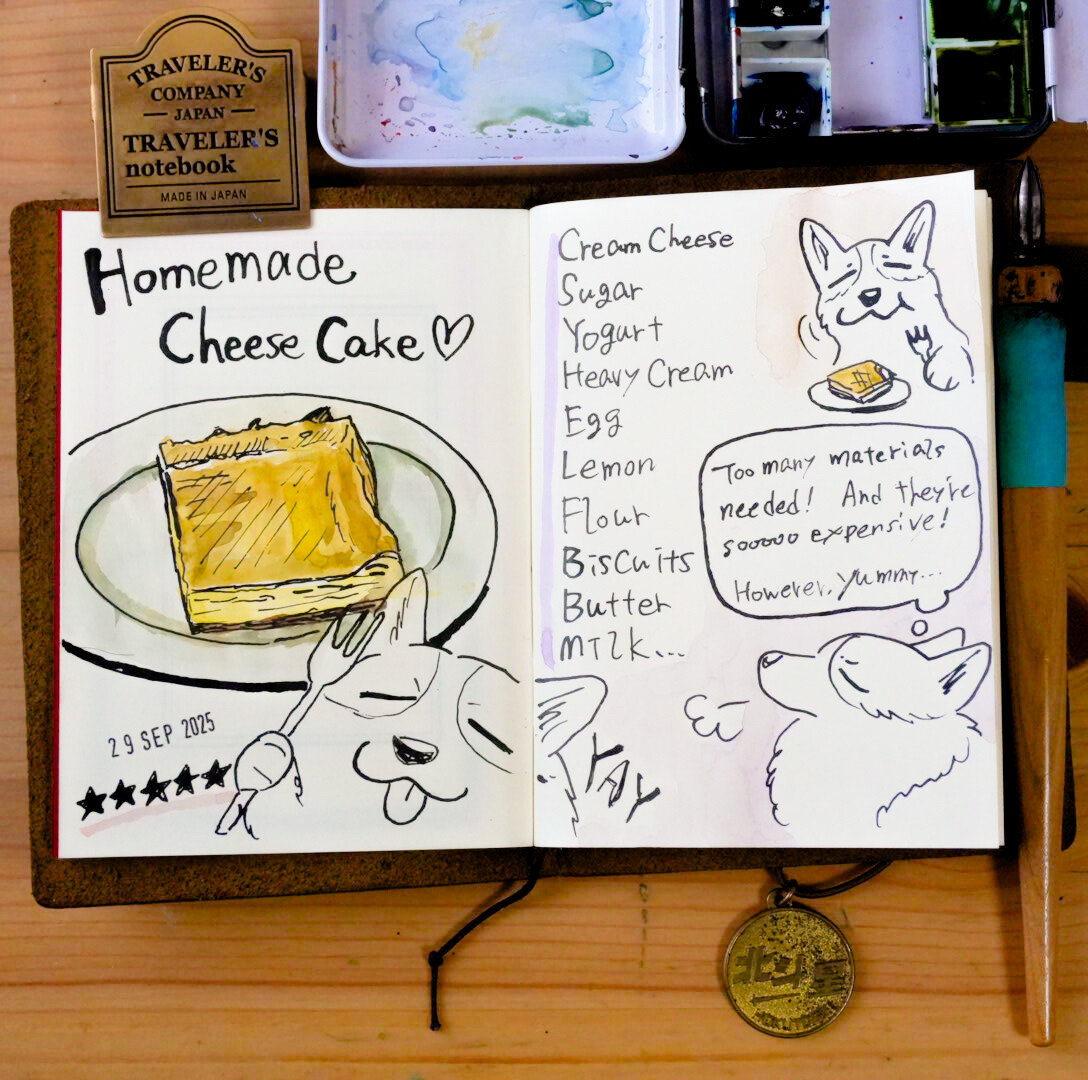 TRAVELER'S
COMPANY
JAPAN
TRAVELER'S
notebook
MADE IN JAPAN
Homemade
Cheese Cake♡
29 SEP 2025
★★★★★
Cream Cheese
Sugar
Yogurt
Heavy Cream
Egg
Lemon
Flour
Biscuits
Butter
Milk...
Too many materials
needed! And they're
sooooo expensive!
However, yummy...
YAY
北斗星